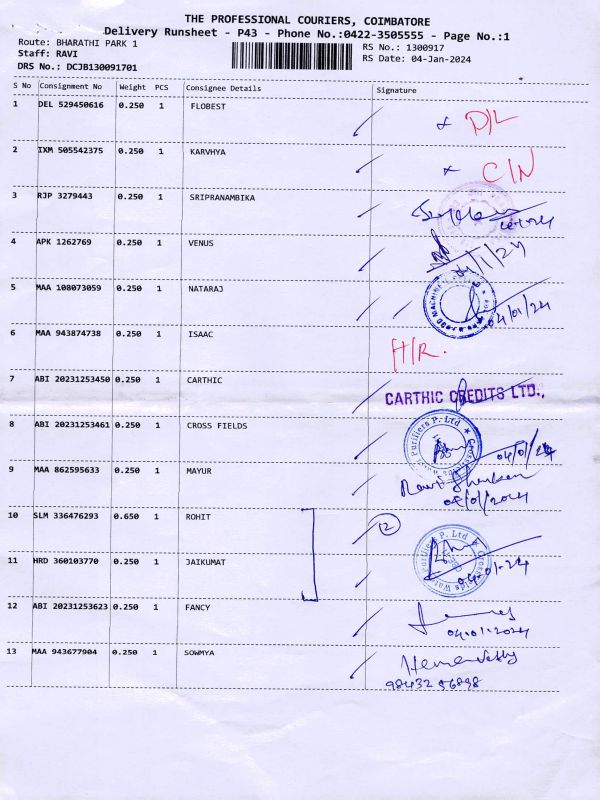 THE PROFESSIONAL COURIERS, COIMBATORE
Delivery Runsheet - P43 - Phone No.:0422-3505555 - Page No.:1
Route: BHARATHI PARK 1
Staff: RAVI
DRS No.: DCJB130091701
RS No.: 1300917
RS Date: 04-Jan-2024
S No Consignment No Weight PCS Consignee Details Signature
1 DEL 529450616 0.250 1 FLOBEST D/L
2 IXM 505542375 0.250 1 KARVHYA C/N
3 RJP 3279443 0.250 1 SRIPRANAMBIKA
4 APK 1262769 0.250 1 VENUS
5 MAA 108073059 0.250 1 NATARAJ 04/01/24
6 MAA 943874738 0.250 1 ISAAC H/R.
7 ABI 20231253450 0.250 1 CARTHIC CARTHIC CREDITS LTD.,
8 ABI 20231253461 0.250 1 CROSS FIELDS 04/01/24
9 MAA 862595633 0.250 1 MAYUR
10 SLM 336476293 0.650 1 ROHIT 2
11 HRD 360103770 0.250 1 JAIKUMAT 04-01-24
12 ABI 20231253623 0.250 1 FANCY 04.01.2024
13 MAA 943677904 0.250 1 SOWMYA